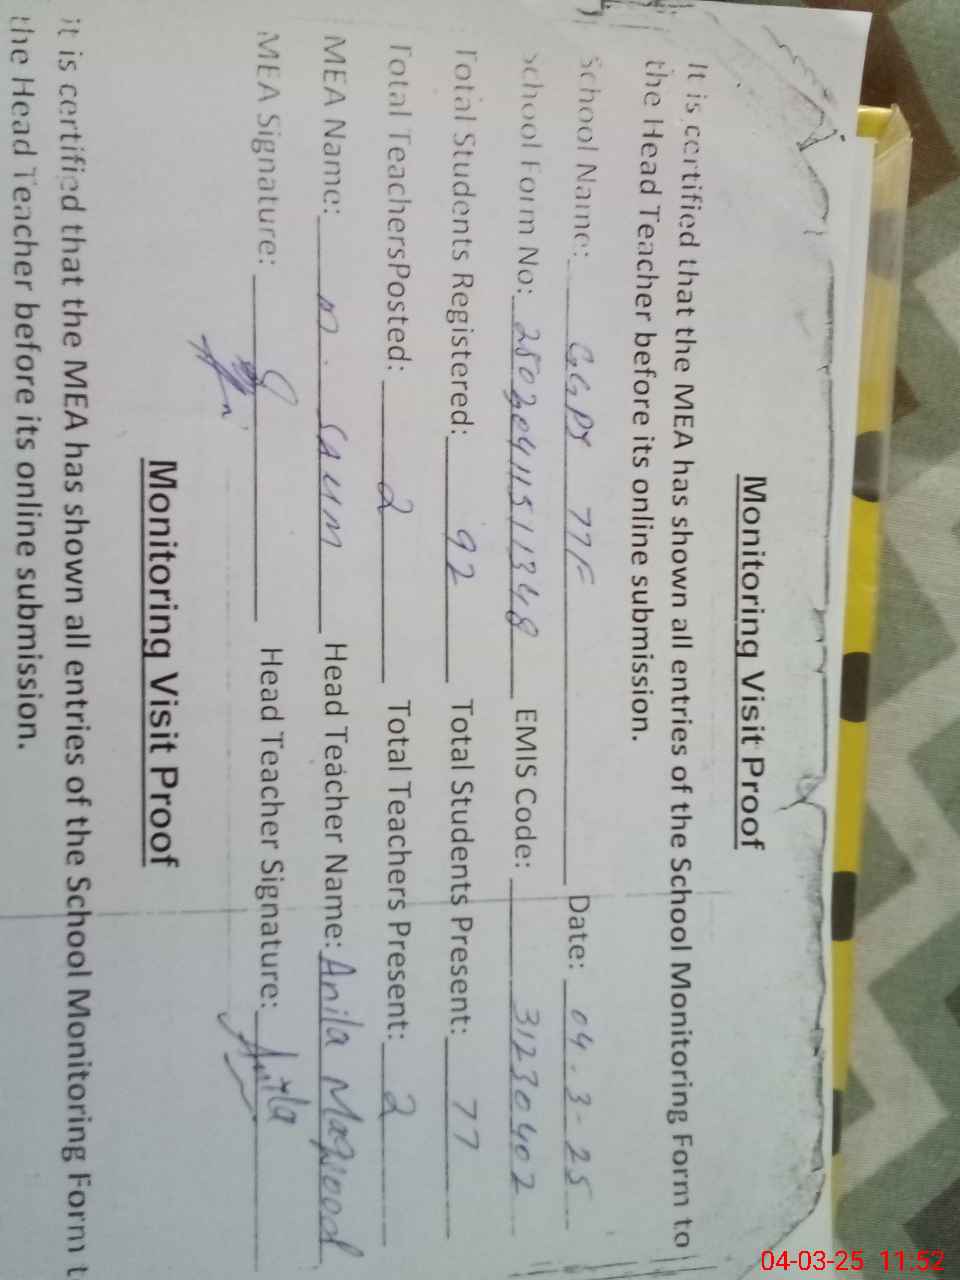 Monitoring Visit Proof
It is certified that the MEA has shown all entries of the School Monitoring Form to
the Head Teacher before its online submission.
School Name: GGPS 77F Date: 04.3-25
School Form No: 25020411511348 EMIS Code: 31230402
Total Students Registered: 92 Total Students Present: 77
Total TeachersPosted: 2 Total Teachers Present: 2
MEA Name: M. SALIM Head Teacher Name: Anila Maqsood
MEA Signature: Head Teacher Signature: Anila
Monitoring Visit Proof
it is certified that the MEA has shown all entries of the School Monitoring Form t
the Head Teacher before its online submission.
04-03-25 11:52